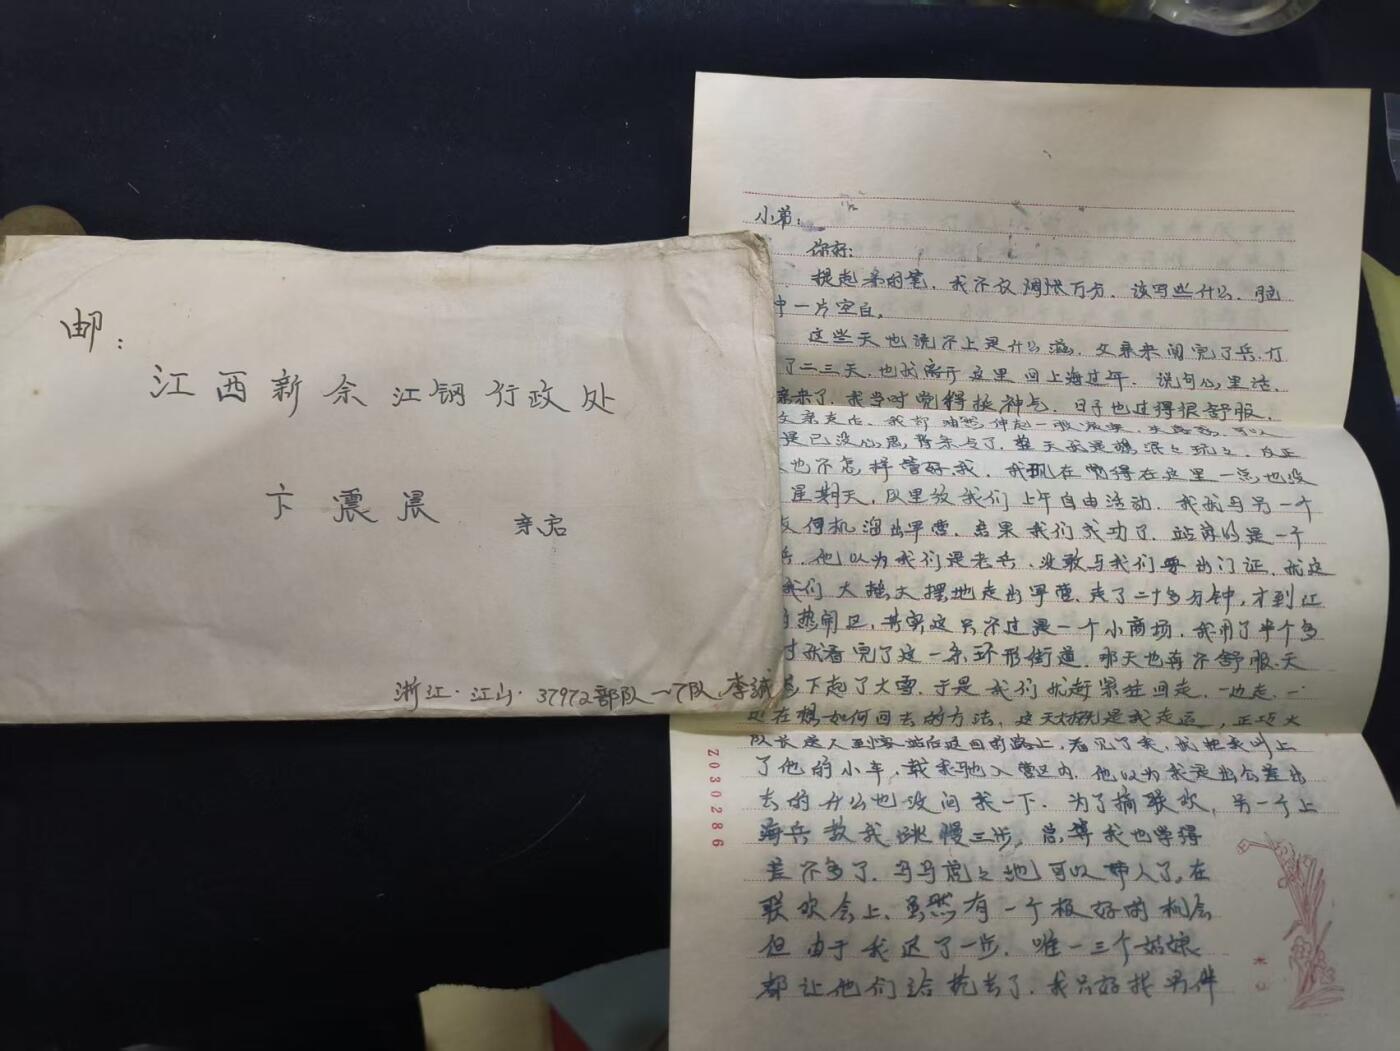 邮：
江西新余江钢行政处
卞震晨 亲启
浙江·江山·37972部队一7队 李诚
小弟：
你好：
提起笔，我不仅惆怅万分，该写些什么，脑
中一片空白。
这些天也说不上是什么滋，父亲来闹完了兵，仃
了二三天，也就离开这里回上海过年。说句心里话，
亲来了，我当时觉得挺神气，日子也过得很舒服，
父亲走后，我却油然伸起一股
是已没心思，整天就是混混玩玩，反正
也不怎样管好我，我现在觉得在这里一点也没
星期天，队里放我们上午自由活动，我就与另一个
伺机溜出军营，结果我们成功了，站岗的是一个
兵，他以为我们是老兵，没敢与我们要出门证，就这
我们大摇大摆地走出军营，走了二十多分钟，才到江
热闹区，其实这只不过是一个小商场，我用了半个多
时就看完了这一条环形街道，那天也有不舒服，天
下起了大雪，于是我们就赶紧往回走，一边走，一
边在想如何回去的方法，这天大概是我走运，正巧大
队长送人到客站后返回的路上，看见了我，就把我叫上
了他的小车，载我驰入营区内，他以为我是出公差出
去的什么也没问我一下，为了搞联欢，另一个上
海兵教我跳慢三步，总算我也学得
差不多了，马马虎虎地可以带人了，在
联欢会上，虽然有一个极好的机会
但由于我迟了一步，唯一三个姑娘
都让他们给抢去了，我只好找男伴
Z030286